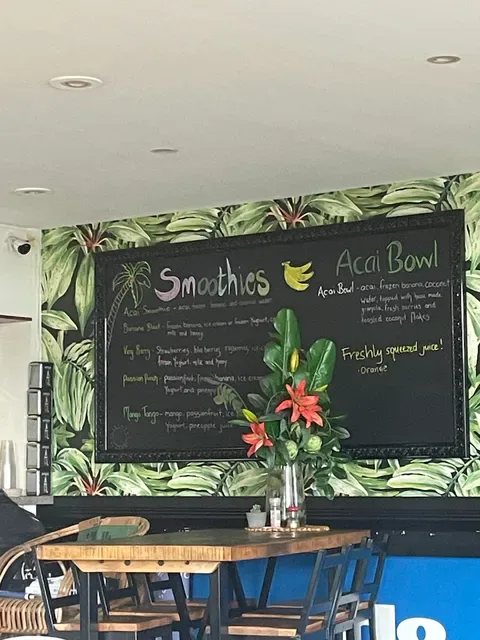 Smoothies
Acai Smoothie - acai, frozen banana and coconut water
Banana Blast - frozen banana, ice cream or frozen yogurt,
milk and honey
Very Berry - Strawberries, blueberries,
frozen yogurt, milk and honey
Passion Punch - passionfruit, frozen banana, ice cream
Yogurt and pineapple
Mango Tango - mango, passionfruit,
Yogurt, pineapple juice
Acai Bowl
Acai Bowl - acai, frozen banana, coconut
water, topped with house made
granola, fresh berries and
toasted coconut flakes
Freshly squeezed juice!
· Orange